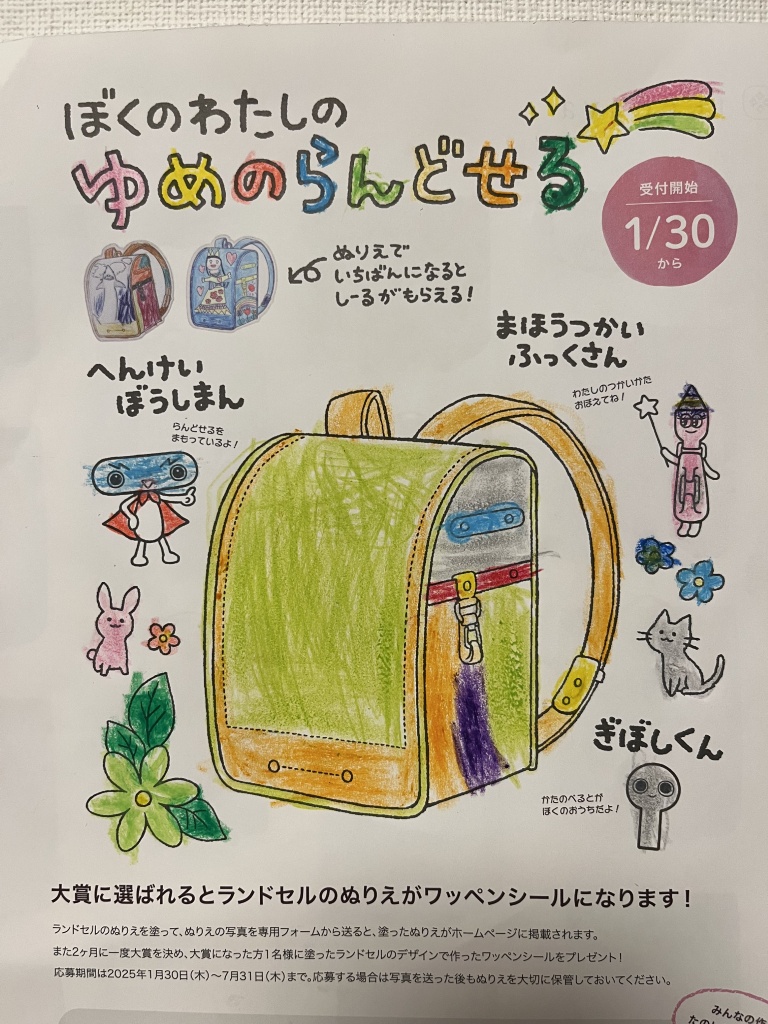 ぼくのわたしの
ゆめのらんどせる
受付開始
1/30
から
ぬりえで
いちばんになると
しーるがもらえる!
まほうつかい
ふっくさん
わたしのつかいかた
おぼえてね!
へんけい
ぼうしまん
らんどせるを
まもっているよ!
ぎぼしくん
かたのべるとが
ぼくのおうちだよ!
大賞に選ばれるとランドセルのぬりえがワッペンシールになります!
ランドセルのぬりえを塗って、ぬりえの写真を専用フォームから送ると、塗ったぬりえがホームページに掲載されます。
また2ヶ月に一度大賞を決め、大賞になった方1名様に塗ったランドセルのデザインで作ったワッペンシールをプレゼント!
応募期間は2025年1月30日(木)〜7月31日(木)まで。応募する場合は写真を送った後もぬりえを大切に保管しておいてください。
みんなの作